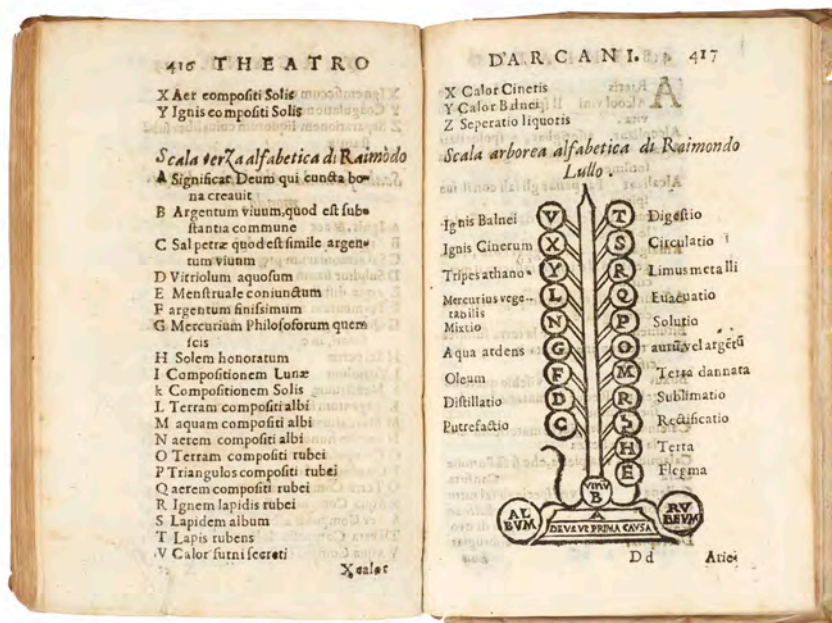 416 THEATRO
X Aer compositi Solis
Y Ignis compositi Solis
Scala terza alfabetica di Raimōdo
A Significat Deum qui cuncta bo-
na creauit
B Argentum viuum, quod est sub-
stantia commune
C Sal petræ quod est simile argen-
tum viuum
D Vitriolum aquosum
E Menstruale coniunctum
F argentum finissimum
G Mercurium Philosoforum quem
scis
H Solem honoratum
I Compositionem Lunæ
k Compositionem Solis
L Terram compositi albi
M aquam compositi albi
N aerem compositi albi
O Terram compositi rubei
P Triangulos compositi rubei
Q aerem compositi rubei
R Ignem lapidis rubei
S Lapidem album
T Lapis rubens
V Calor furni secreti
X calor
D'ARCANI. 417
X Calor Cineris
Y Calor Balnei
Z Seperatio liquoris
Scala arborea alfabetica di Raimondo
Lullo.
Ignis Balnei V T Digestio
Ignis Cinerum X S Circulatio
Tripes athano Y R Limus metalli
Mercurius vege-
tabilis L Q Euacuatio
Mixtio N P Solutio
Aqua ardens G O aurū vel argētū
Oleum F M Terra dannata
Distillatio D R Sublimatio
Putrefactio C S Rectificatio
H Terra
E Flegma
VINV
B
AL
BVM
RV
BEVM
DEVEVE PRIMA CAVSA
Dd